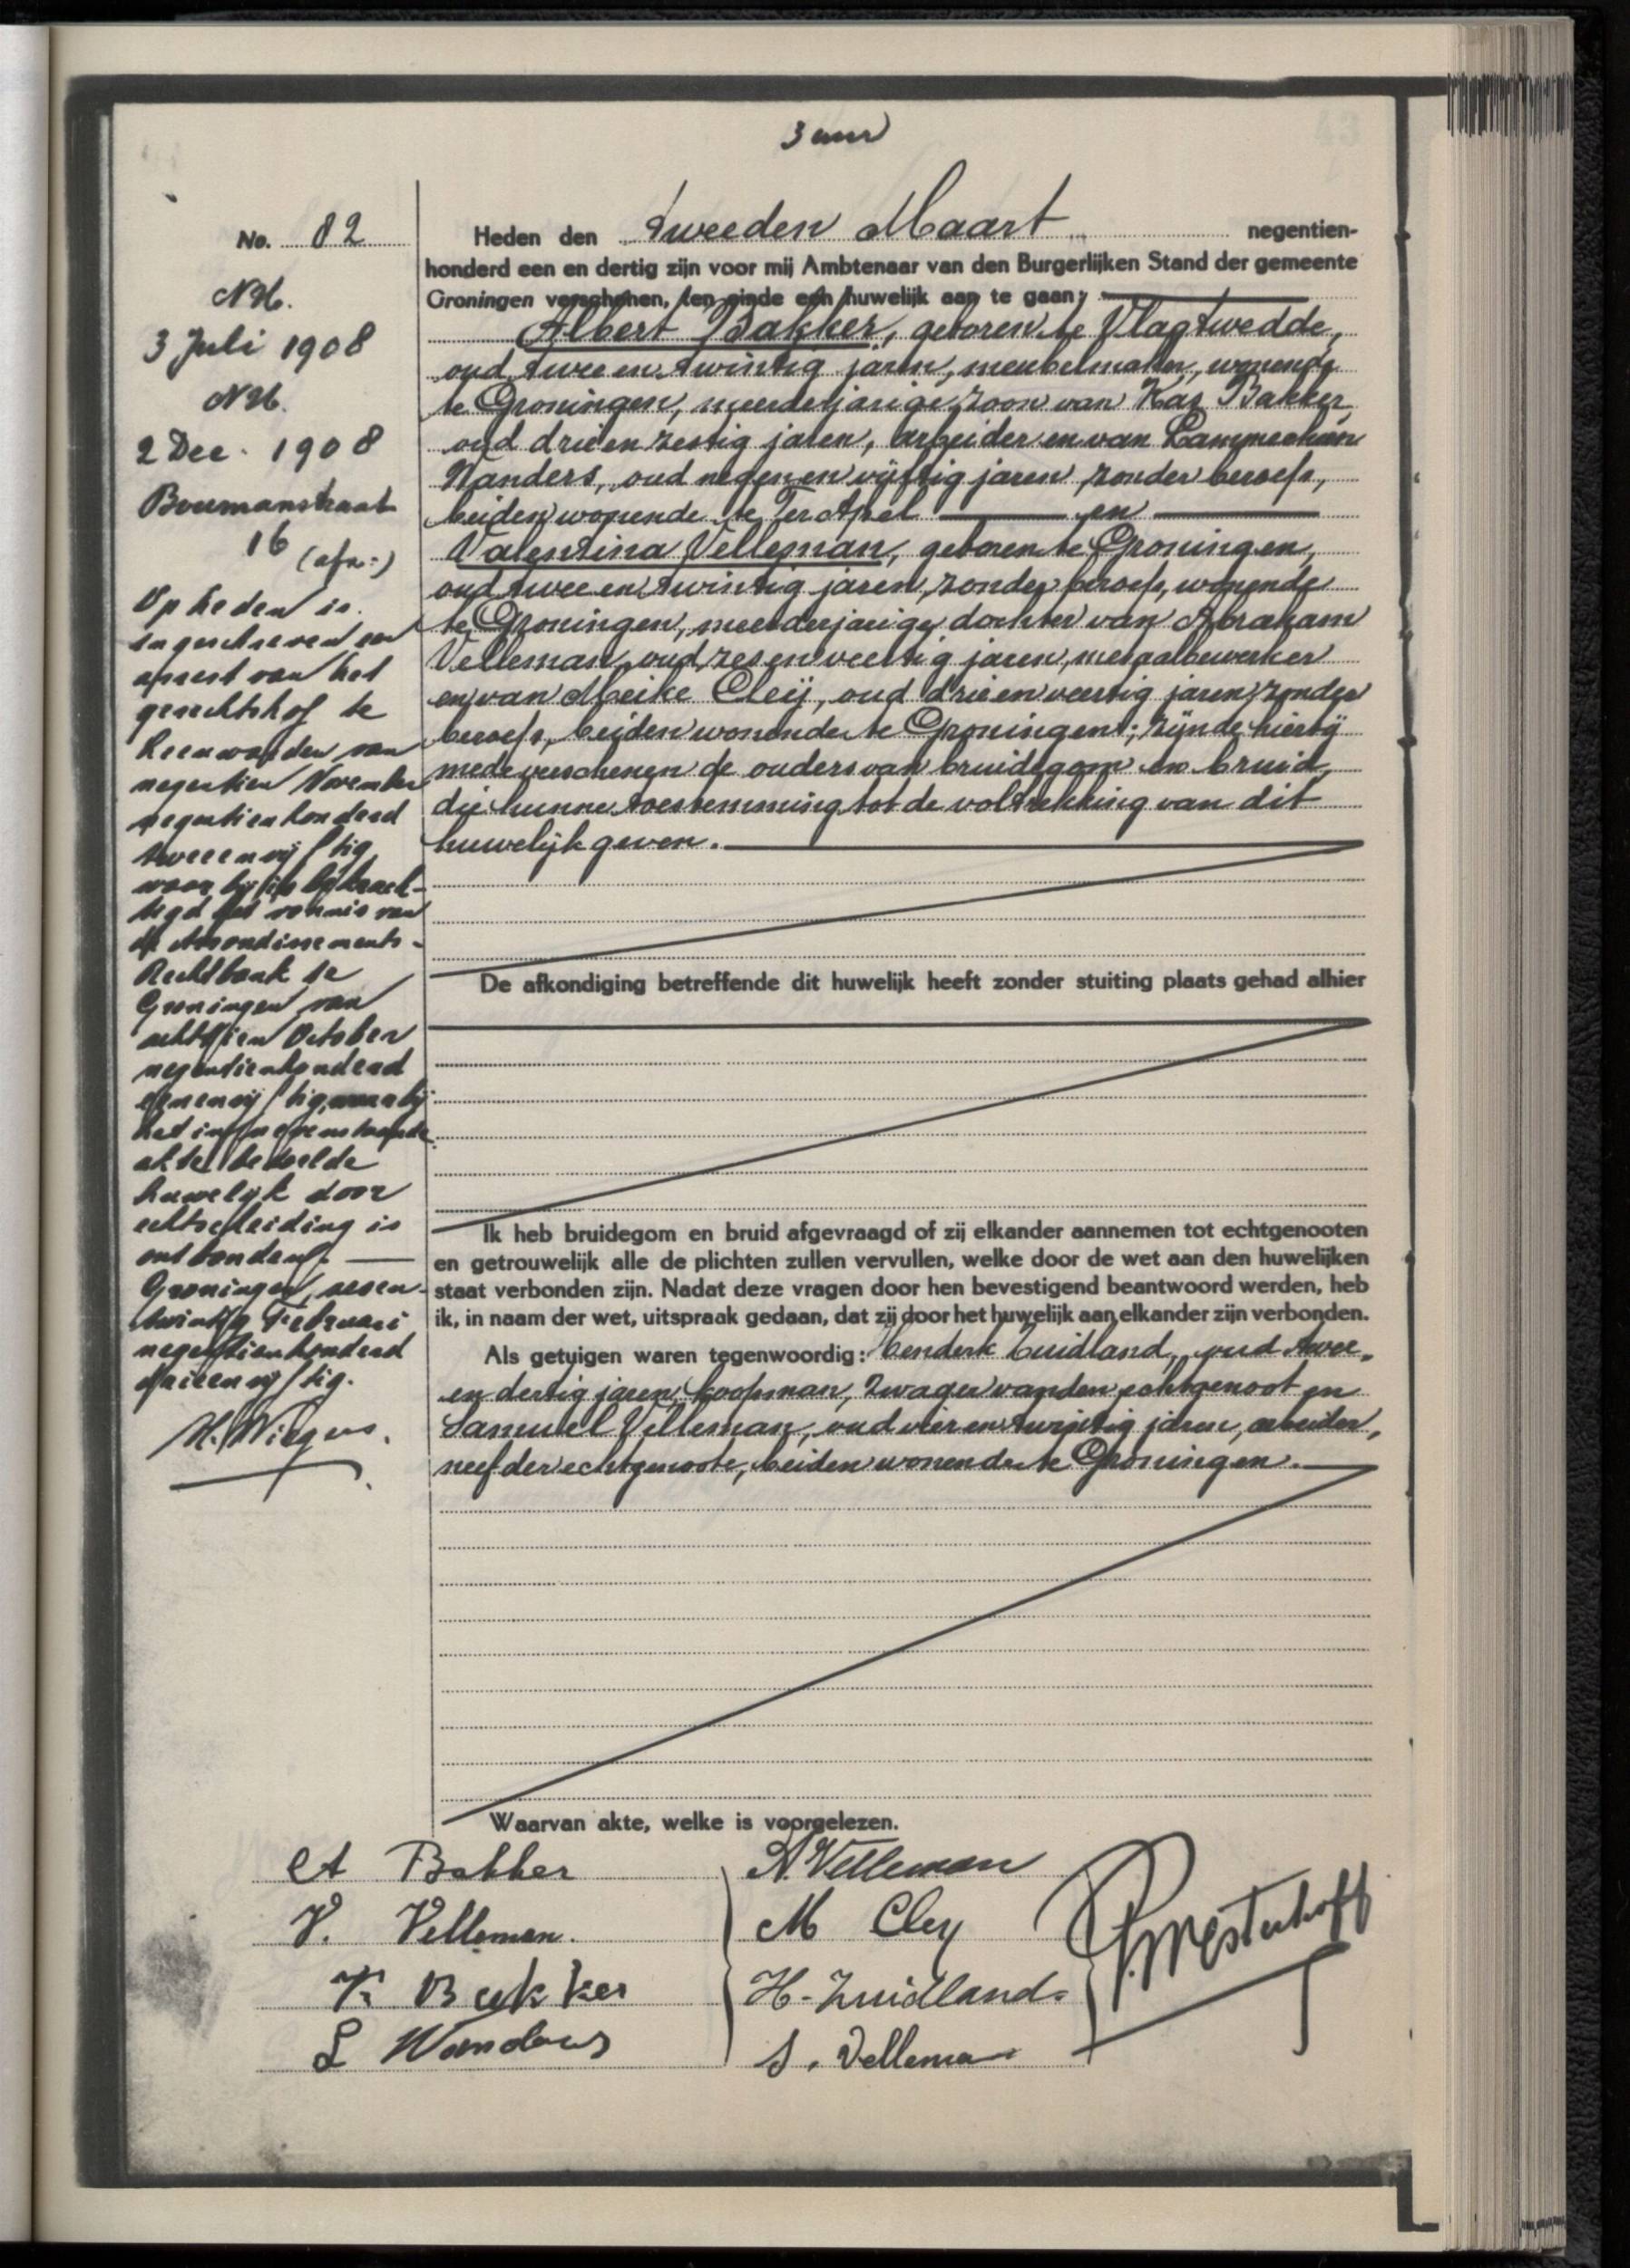 3 uur
No. 82
N.H.
3 Juli 1908
N.H.
2 Dec. 1908
Boumanstraat
16 (afk:)
Op heden is
ingeschreven een
arrest van het
gerechtshof te
Leeuwarden van
negentien November
negentienhonderd
tweeenvijftig
waarbij is bekrach-
tigd het vonnis van
de Arrondissements-
Rechtbank te
Groningen van
achttien October
negentienhonderd
eenenvijftig, waarbij
het in nevenstaande
akte bedoelde
huwelijk door
echtscheiding is
ontbonden. —
Groningen, zesen-
twintig Februari
negentienhonderd
drieenvijftig.
H. Wiegers.
Heden den tweeden Maart negentien-
honderd een en dertig zijn voor mij Ambtenaar van den Burgerlijken Stand der gemeente
Groningen verschenen, ten einde een huwelijk aan te gaan:
Albert Bakker, geboren te Vlagtwedde,
oud twee en twintig jaren, meubelmaker, wonende
te Groningen, meerderjarige zoon van Kas Bakker,
oud drie en zestig jaren, arbeider en van Lammechien
Wanders, oud negen en vijftig jaren, zonder beroep,
beiden wonende te Ter Apel — en —
Valentina Velleman, geboren te Groningen,
oud twee en twintig jaren, zonder beroep, wonende
te Groningen, meerderjarige dochter van Abraham
Velleman, oud zes en veertig jaren, metaalbewerker
en van Meike Cleij, oud drie en veertig jaren, zonder
beroep, beiden wonende te Groningen; zijnde hierbij
mede verschenen de ouders van bruidegom en bruid,
die hunne toestemming tot de voltrekking van dit
huwelijk geven.
De afkondiging betreffende dit huwelijk heeft zonder stuiting plaats gehad alhier
Ik heb bruidegom en bruid afgevraagd of zij elkander aannemen tot echtgenooten
en getrouwelijk alle de plichten zullen vervullen, welke door de wet aan den huwelijken
staat verbonden zijn. Nadat deze vragen door hen bevestigend beantwoord werden, heb
ik, in naam der wet, uitspraak gedaan, dat zij door het huwelijk aan elkander zijn verbonden.
Als getuigen waren tegenwoordig: Henderk Zuidland, oud twee
en dertig jaren, koopman, zwager van den echtgenoot en
Samuel Velleman, oud vier en twintig jaren, arbeider,
neef der echtgenoote, beiden wonende te Groningen.
Waarvan akte, welke is voorgelezen.
A Bakker
V. Velleman.
K Bakker
L Wanders
A. Velleman
M Cley
H. Zuidland.
S. Velleman
P. Westerhoff